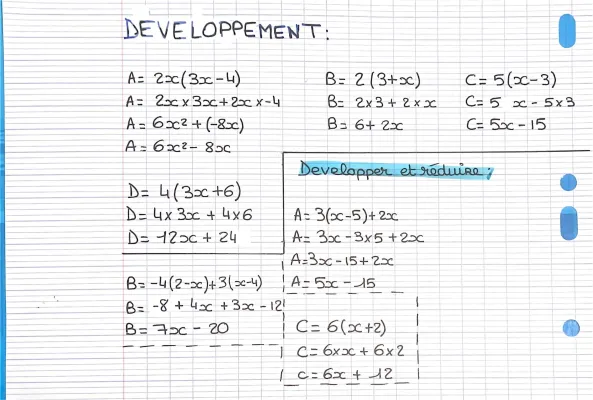 DEVELOPPEMENT:
A= 2x(3x-4)
A= 2x×3x+2x×-4
A= 6x²+(-8x)
A= 6x²- 8x
B= 2(3+x)
B= 2×3+2×x
B= 6+ 2x
C= 5(x-3)
C= 5 x - 5×3
C= 5x - 15
D= 4(3x+6)
D= 4×3x + 4×6
D= 12x + 24
Developper et réduire:
A= 3(x-5)+2x
A= 3x - 3×5 + 2x
A=3x - 15+2x
A= 5x - 15
B= -4(2-x)+3(x-4)
B= -8 + 4x + 3x - 12
B= 7x - 20
C = 6(x+2)
C= 6×x + 6×2
C= 6x + 12